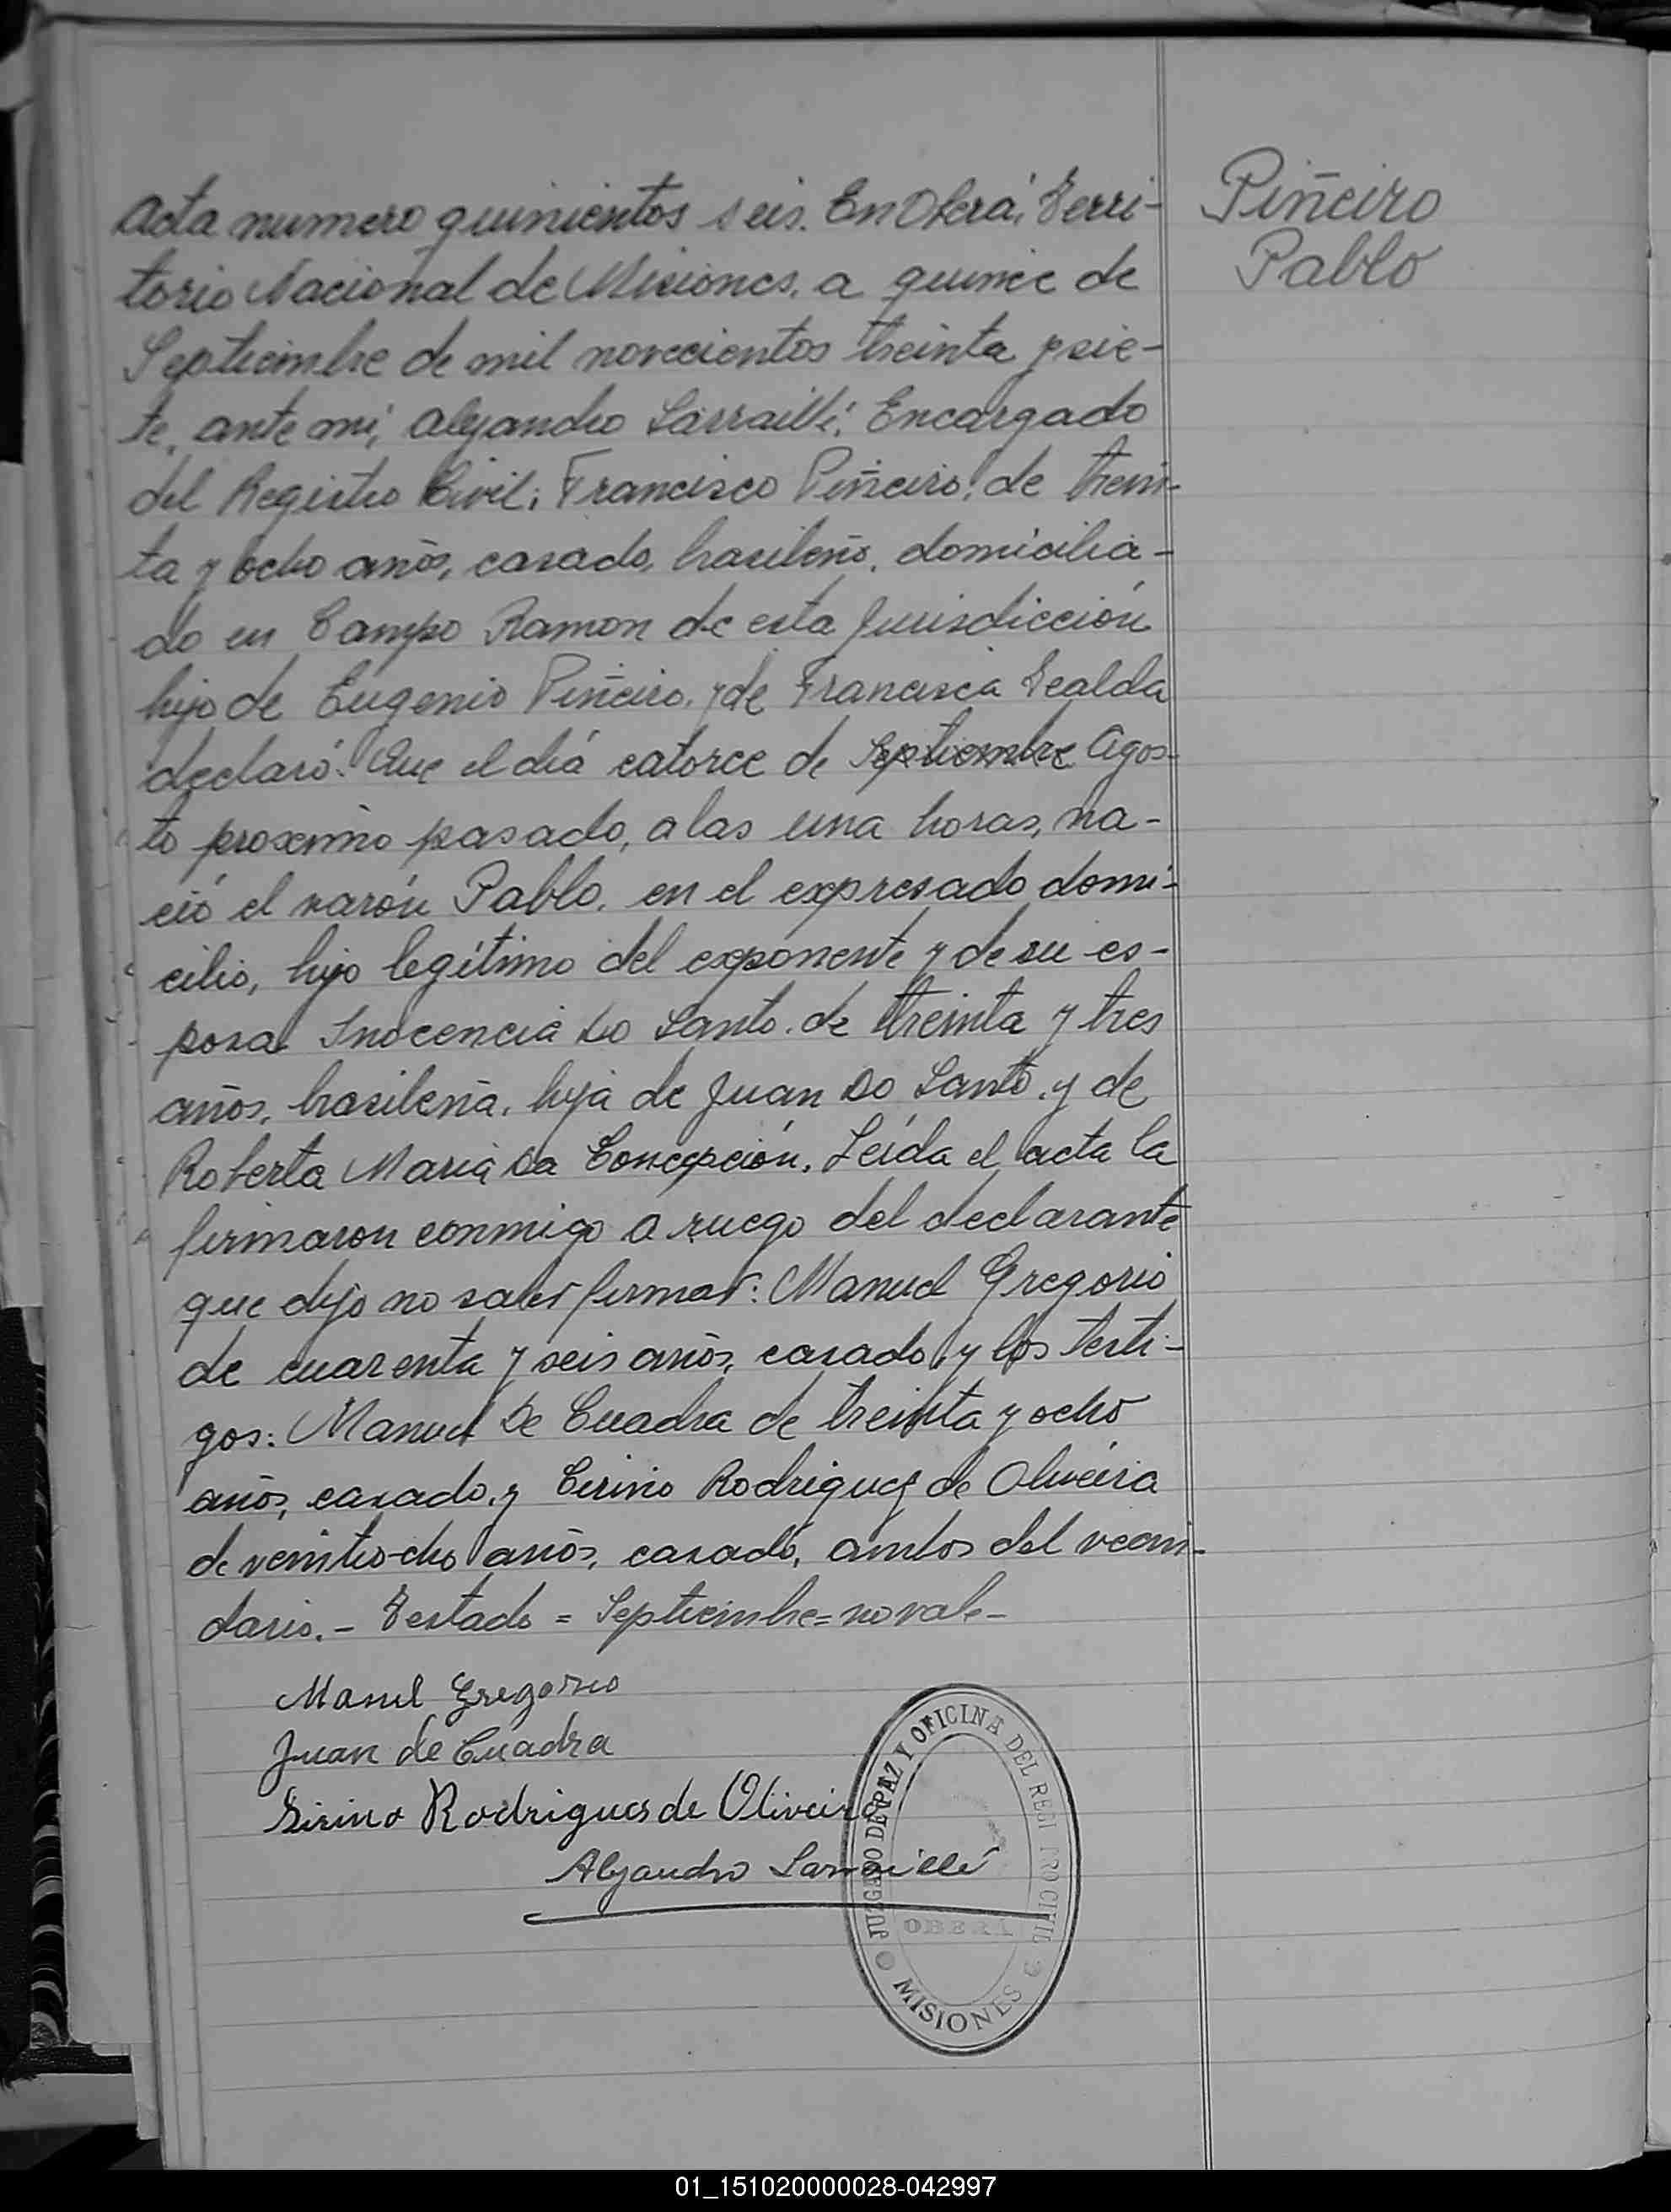 Piñeiro
Pablo
Acta numero quinientos seis. En Oberá, Terri-
torio Nacional de Misiones, a quince de
Septiembre de mil novecientos treinta y sie-
te, ante mi, Alejandro Sarraillé, Encargado
del Registro Civil; Francisco Piñeiro, de trein-
ta y ocho años, casado, brasileño, domicilia-
do en Campo Ramon de esta Jurisdicción
hijo de Eugenio Piñeiro, y de Francisca Tealda
declaró: Que el día catorce de Septiembre Agos-
to proximo pasado, a las una horas, na-
ció el varón Pablo, en el expresado domi-
cilio, hijo legítimo del exponente y de su es-
posa Inocencia Do Santo, de treinta y tres
años, brasileña, hija de Juan Do Santo, y de
Roberta Maria Da Concepción. Leída el acta la
firmaron conmigo a ruego del declarante
que dijo no saber firmar: Manuel Gregorio
de cuarenta y seis años, casado, y los testi-
gos: Manuel De Cuadra de treinta y ocho
años, casado, y Cirino Rodriguez de Oliveira
de veintiocho años, casado, ambos del vecin-
dario.- Testado = Septiembre = no vale-
Manuel Gregorio
Juan de Cuadra
Sirino Rodrigues de Oliveira
Alejandro Sarraillé
JUZGADO DE PAZ Y OFICINA DEL REGISTRO CIVIL
OBERA
MISIONES
01_151020000028-042997